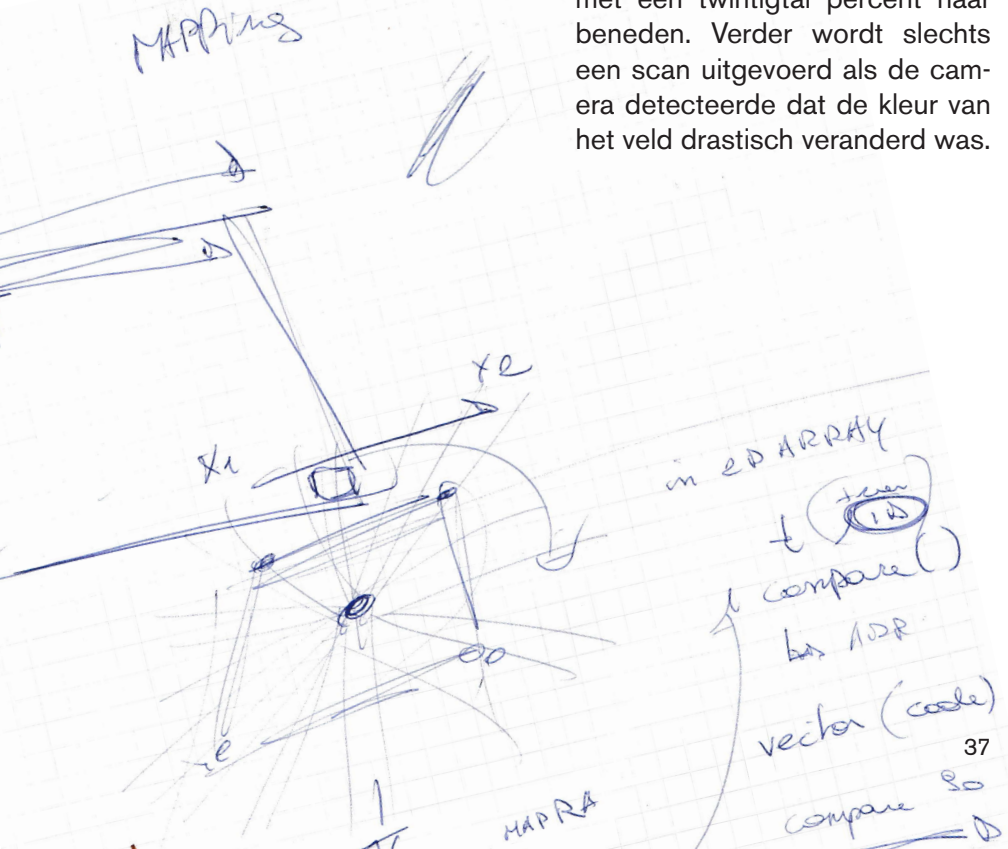 met een twintigtal percent naar
beneden. Verder wordt slechts
een scan uitgevoerd als de cam-
era detecteerde dat de kleur van
het veld drastisch veranderd was.
MAPPing
x2
x1
in 2D ARRAY
t
compare()
vector (code)
37
MAPRA
compare